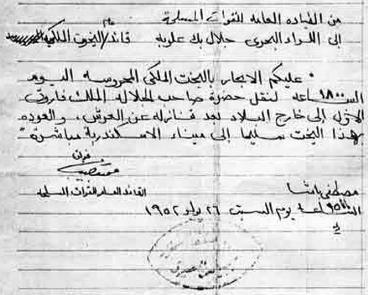 من القياده العامه للقوات المسلحة
إلى اللواء البحرى جلال بك علوبه قائد عام اليخوت الملكيه
" عليكم الابحار باليخت الملكى المحروسه اليوم
الساعه ١٨٠٠ لنقل حضرة صاحب الجلاله الملك فاروق
الاول إلى خارج البلاد بعد تنازله عن العرش، والعوده
بهذا اليخت سليما إلى ميناء الاسكندرية مباشرة "
القائد العام للقوات المسلحه
مصطفى باشا
الساعه يوم السبت ٢٦ يوليو ١٩٥٢